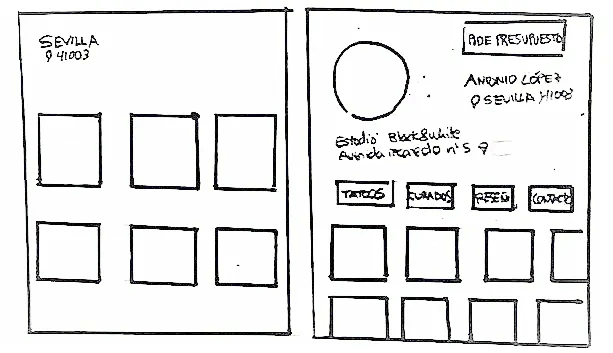 SEVILLA
41003
PIDE PRESUPUESTO
ANTONIO LÓPEZ
SEVILLA 41003
Estudio Black&White
Avenida nº 5
TATOOS
CURADOS
RESEÑ
CONTACTO